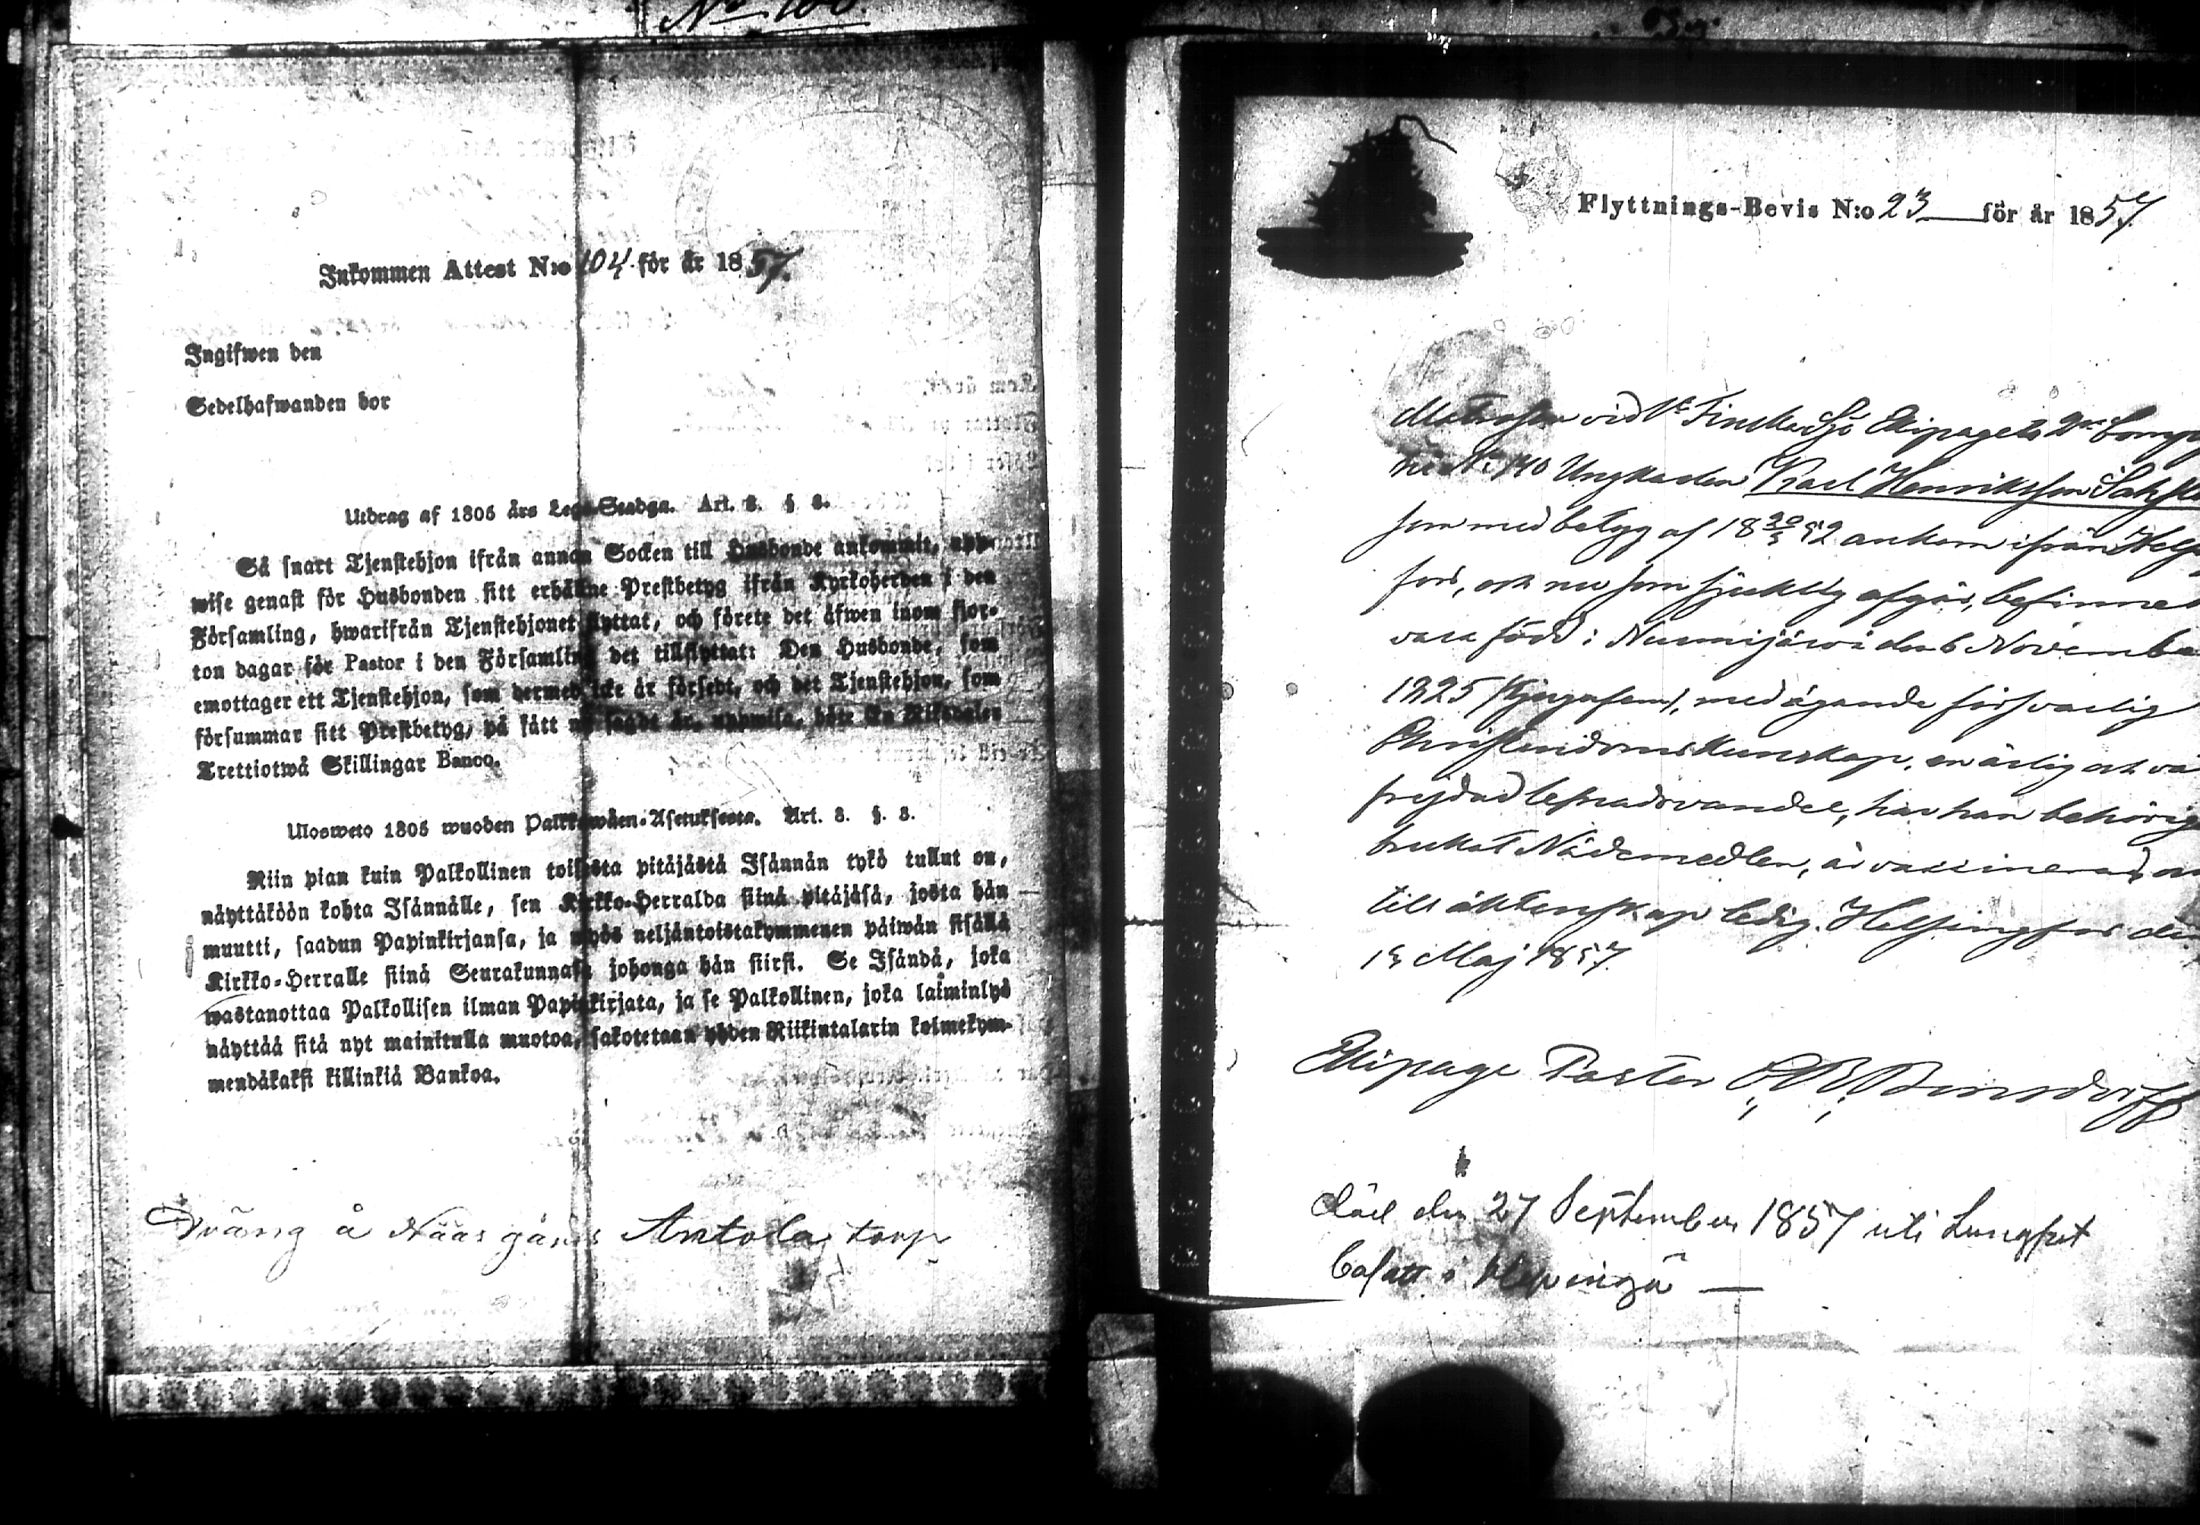 No 100.
Inkommen Attest N:o 104 för år 1857.
Ingifwen den
Sedelhafwanden bor
Utdrag af 1805 års Lego-Stadga. Art. 3. § 3.
Så snart Tjenstehjon ifrån annan Socken till Husbonde ankommit, upp-
wise genast för Husbonden sitt erhållne Prestbetyg ifrån Kyrkoherden i den
Församling, hwarifrån Tjenstehjonet flyttat, och förete det äfwen inom fjor-
ton dagar för Pastor i den Församling det tillflyttat: Den Husbonde, som
emottager ett Tjenstehjon, som dermed icke är försedt, och det Tjenstehjon, som
försummar sitt Prestbetyg, på sätt nu sagdt är, uppwisa, böte En Riksdaler
Trettiotwå Skillingar Banco.
Ulosweto 1805 wuoden Palkkawäen-Asetuksesta. Art. 3. §. 3.
Niin pian kuin Palkollinen toisesta pitäjästä Isännän tykö tullut on,
näyttäköön kohta Isännälle, sen Kirkko-Herralda siinä pitäjäsä, josta hän
muutti, saadun Papinkirjansa, ja myös neljäntoistakymmenen päiwän sisällä
Kirkko-Herralle siinä Seurakunnasa johonga hän siirsi. Se Isändä, joka
wastanottaa Palkollisen ilman Papinkirjata, ja se Palkollinen, joka laiminlyö
näyttää sitä nyt mainitulla muotoa, sakotetaan yhden Riikintalarin kolmekym-
mendäkaksi killinkiä Bankoa.
Dräng å Näås gårds Antola torp
Flyttnings-Bevis N:o 23 för år 1857
vid Finska Sjö Ekipagets 2dra Comp
No 140 Ungkarlen Karl Henriksson
som med betyg af 18 20/5 52 ankom ifrån Helsing
fors, och nu som sjuklig afgår, befinnes
vara född i Nurmijärvi den 6 November
1825 med ägande försvarlig
Christendomskunskap, en ärlig och väl
frejdad lefnadsvandel, har han behörigen
brukat Nådemedlen, är vaccinerad och
till äktenskap ledig. Helsingfors den
15 Maj 1857.
Ekipage Pastor
död den 27 September 1857 uti Lungsot